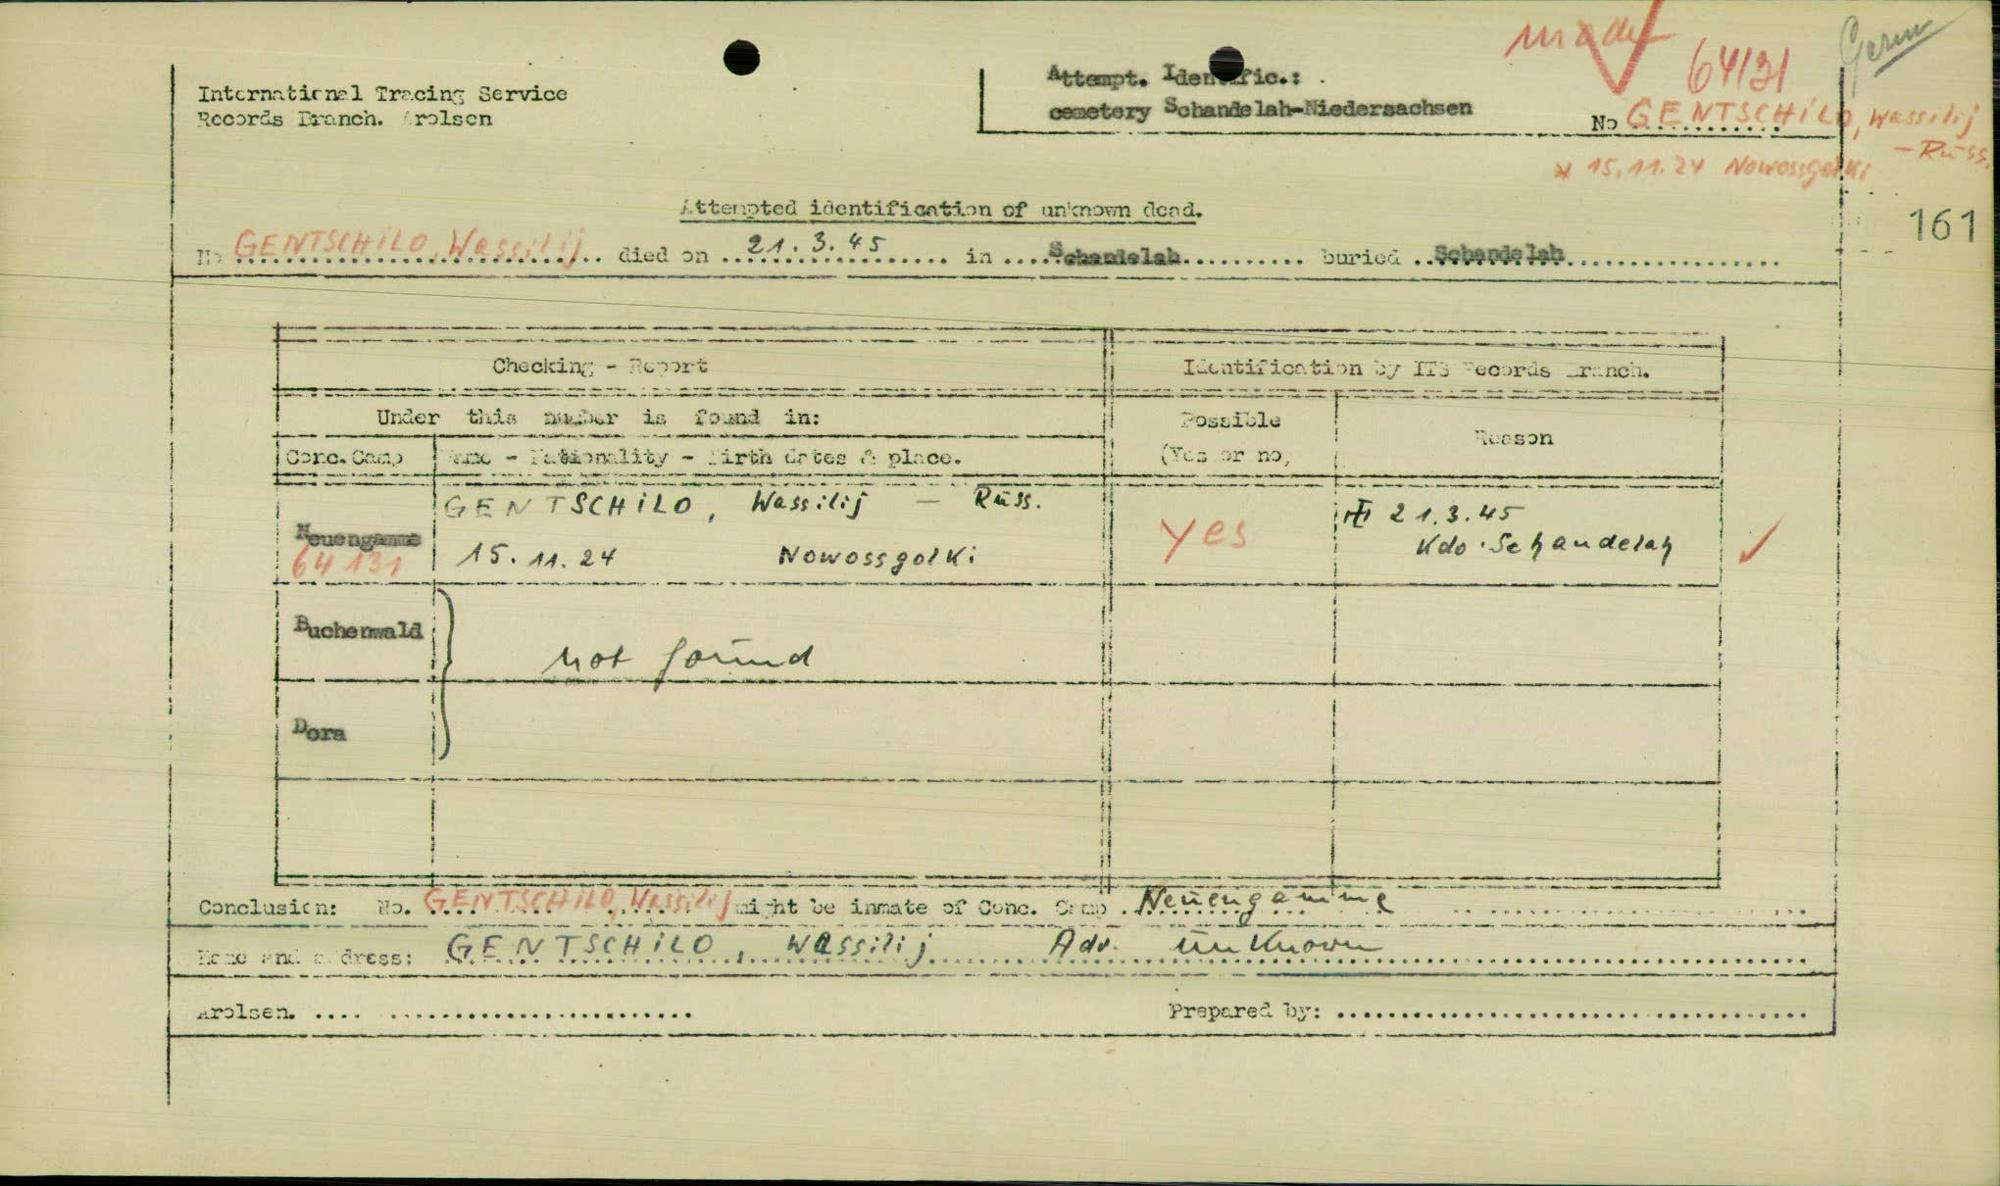 made 64131 Germ
International Tracing Service
Records Branch. Arolsen
Attempt. Identific.:
cemetery Schandelah-Niedersachsen
No GENTSCHILO, Wassilij
- Russ.
* 15.11.24 Nowossgolki
161
Attempted identification of unknown dead.
No GENTSCHILO, Wassilij died on 21.3.45 in Schandelah buried Schandelah
Checking - Report
Identification by ITS Records Branch.
Under this number is found in:
Possible
(Yes or no,
Reason
Conc. Camp Name - Nationality - Birth dates & place.
GENTSCHILO, Wassilij - Russ.
Neuengamme
64 131
15.11.24 Nowossgolki
yes
21.3.45
Kdo. Schandelah
Buchenwald
not found
Dora
Conclusion: No. GENTSCHILO, Wassilij might be inmate of Conc. Camp Neuengamme
Name and address: GENTSCHILO, Wassilij Adr. unknown
Arolsen.
Prepared by: